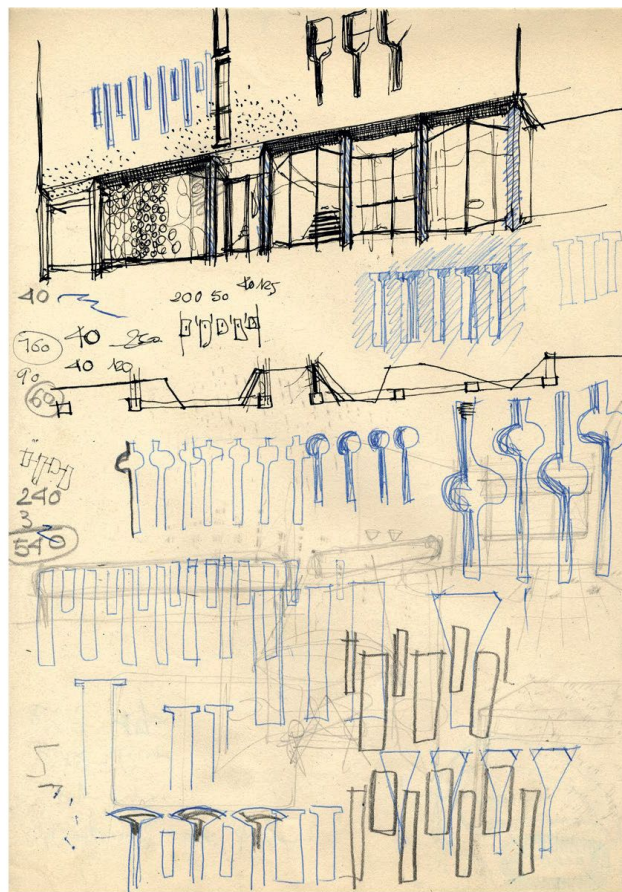 40
200 50 40 125
160 40 250
90 40 120
60
240
3
540